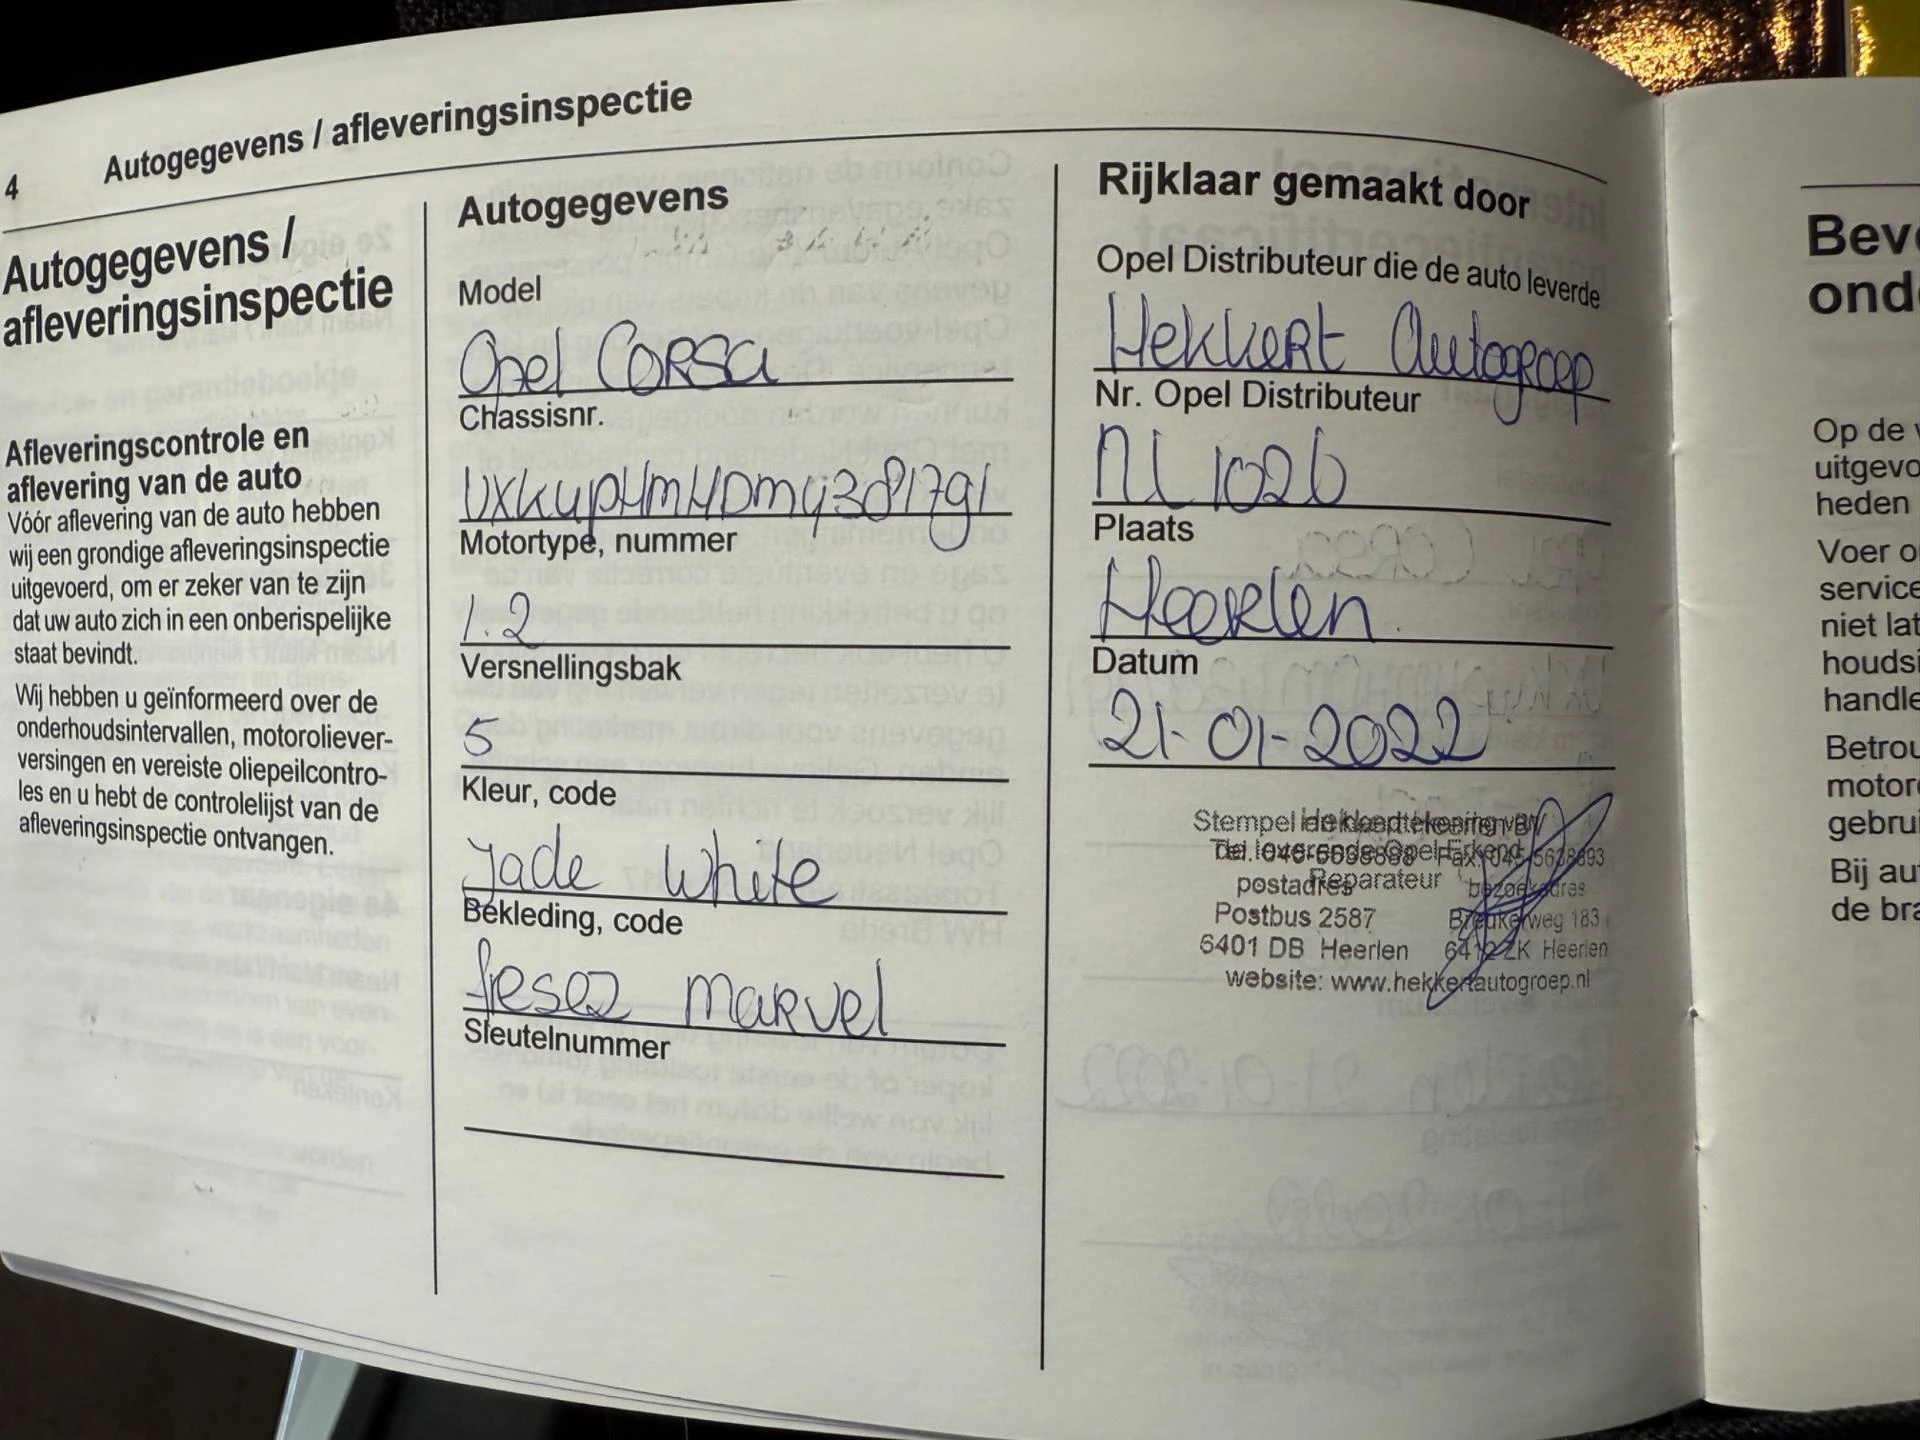 4 Autogegevens / afleveringsinspectie
Autogegevens /
afleveringsinspectie
Afleveringscontrole en
aflevering van de auto
Vóór aflevering van de auto hebben
wij een grondige afleveringsinspectie
uitgevoerd, om er zeker van te zijn
dat uw auto zich in een onberispelijke
staat bevindt.
Wij hebben u geïnformeerd over de
onderhoudsintervallen, motoroliever-
versingen en vereiste oliepeilcontro-
les en u hebt de controlelijst van de
afleveringsinspectie ontvangen.
Autogegevens
Model
Opel CORSA
Chassisnr.
Motortype, nummer
1.2
Versnellingsbak
5
Kleur, code
Jade White
Bekleding, code
Marvel
Sleutelnummer
Rijklaar gemaakt door
Opel Distributeur die de auto leverde
Hekkert Autogroep
Nr. Opel Distributeur
NL 1026
Plaats
Heerlen
Datum
21-01-2022
Stempel
Reparateur
postadres bezoekadres
Postbus 2587 Breukerweg 183
6401 DB Heerlen 6412 ZK Heerlen
website: www.hekkertautogroep.nl
Op de